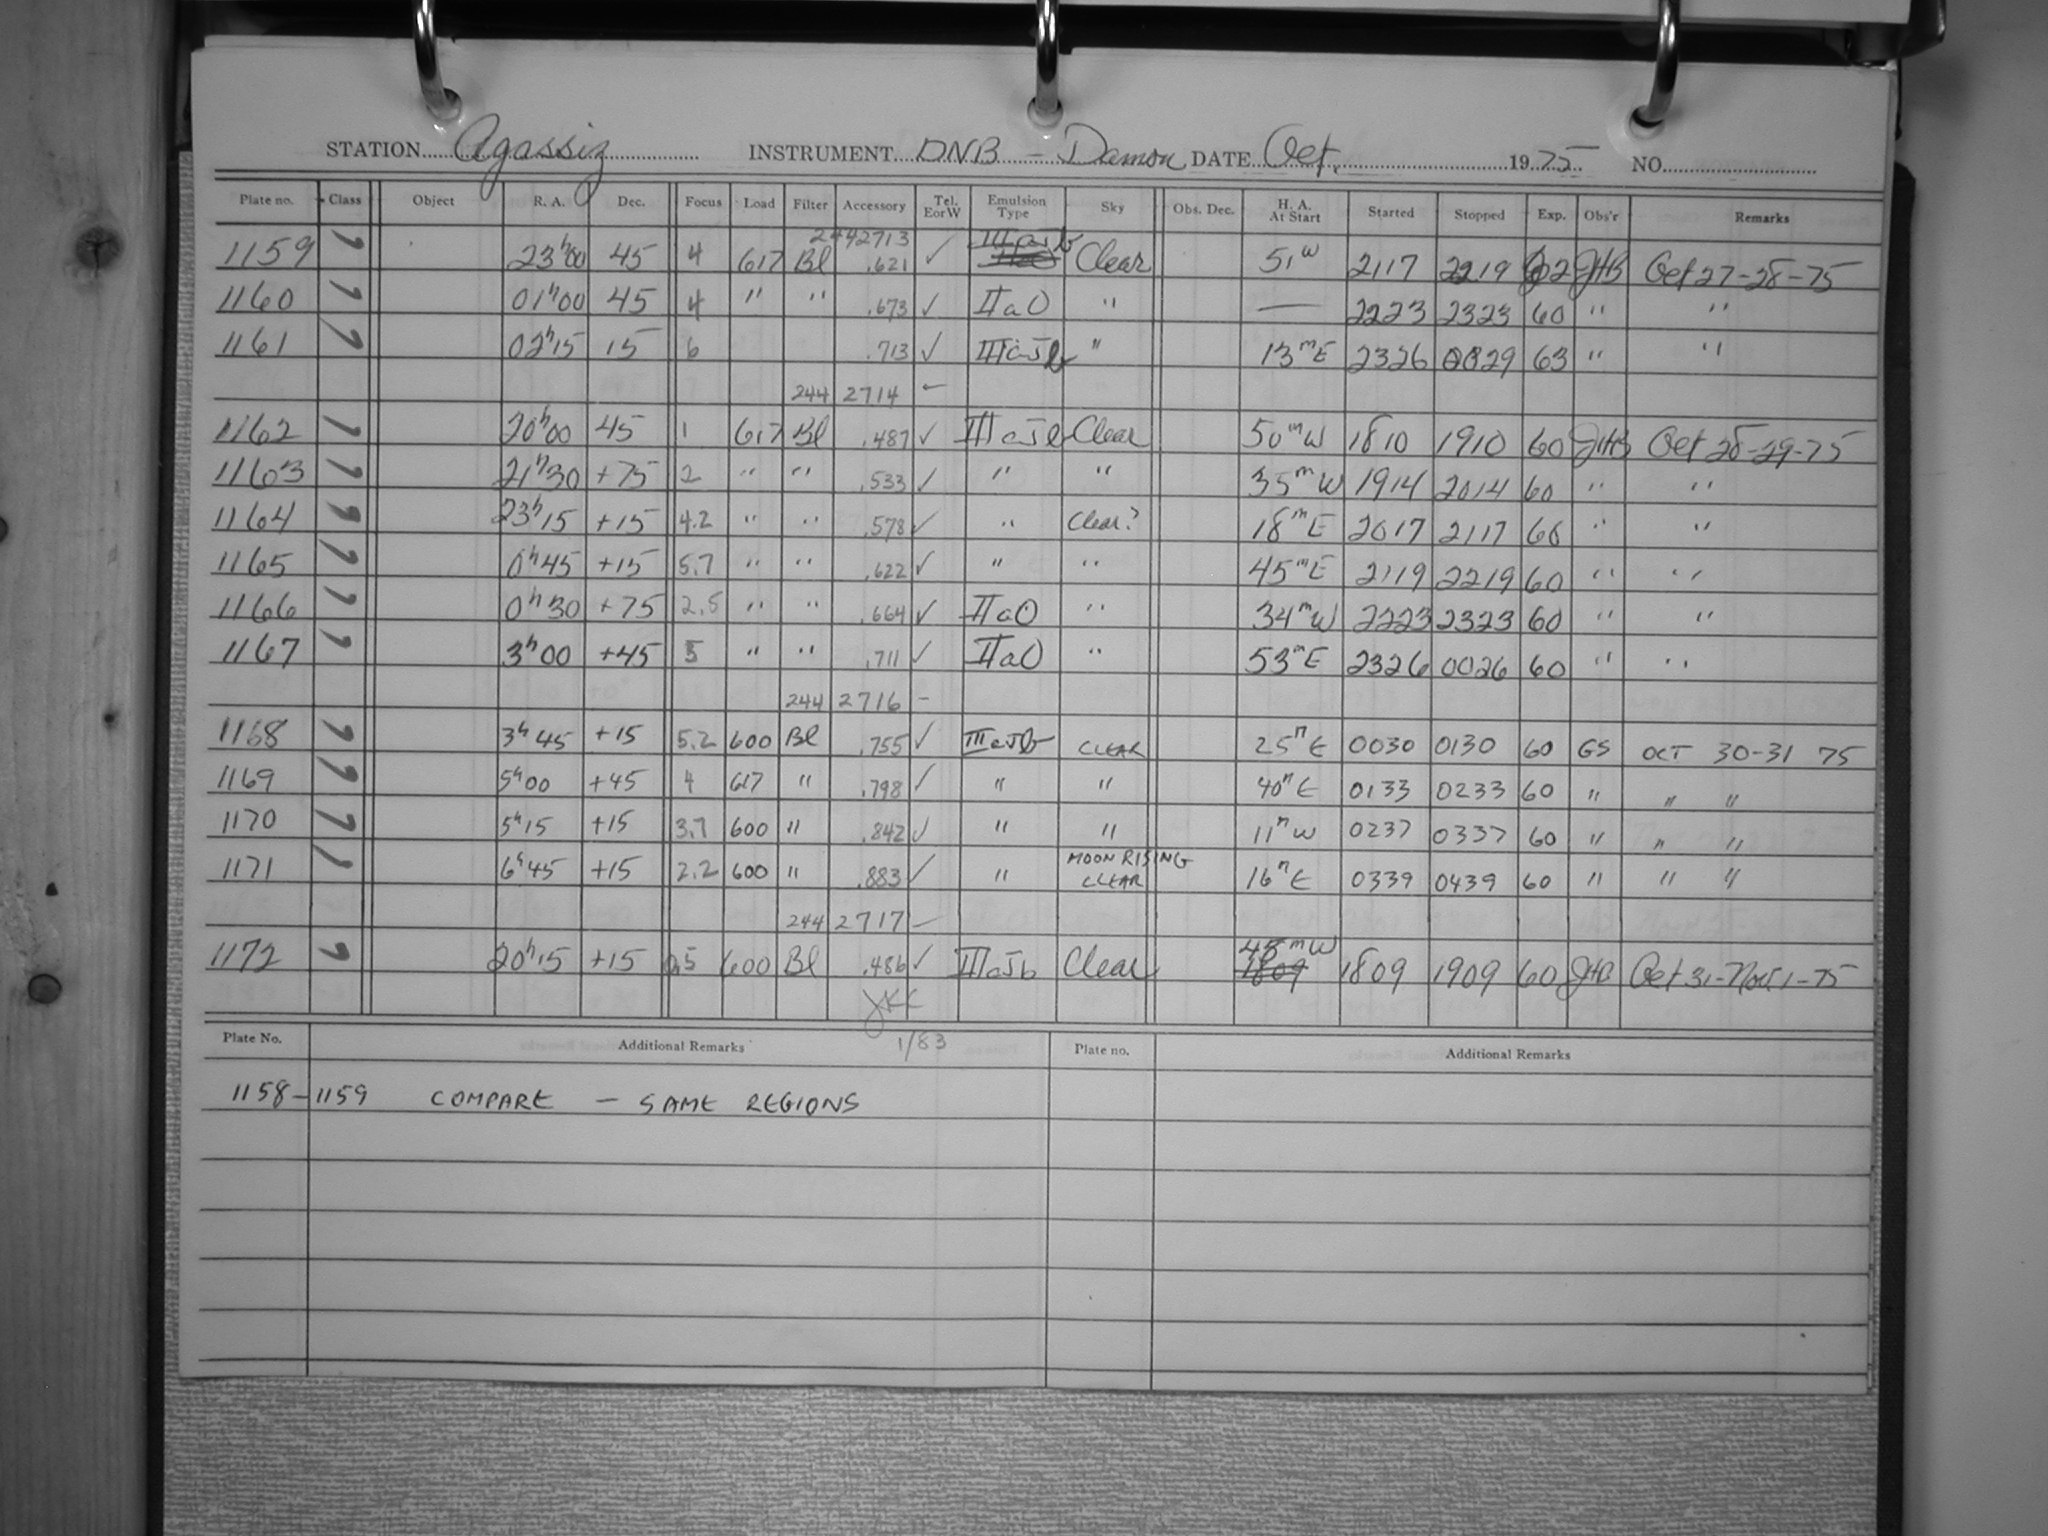 STATION Agassiz INSTRUMENT DNB - Damon DATE Oct. 1975 NO.
Plate no. Class Object R. A. Dec. Focus Load Filter Accessory Tel. E or W Emulsion Type Sky Obs. Dec. H. A. At Start Started Stopped Exp. Obs'r Remarks
2442713
1159 23h00 45 4 617 Bl .621 ✓ IIIaJb Clear 51 W 2117 2219 62 JHB Oct 27-28-75
1160 01h00 45 4 " " .673 ✓ IIaO " — 2223 2323 60 " "
1161 02h15 15 6 .713 ✓ IIIaJb " 13mE 2326 0029 63 " "
244 2714 -
1162 20h00 45 1 617 Bl .487 ✓ IIIaJb Clear 50mW 1810 1910 60 JHB Oct 28-29-75
1163 21h30 +75 2 " " .533 ✓ " " 35mW 1914 2014 60 " "
1164 23h15 +15 4.2 " " .578 ✓ " Clear? 18mE 2017 2117 60 " "
1165 0h45 +15 5.7 " " .622 ✓ " " 45mE 2119 2219 60 " "
1166 0h30 +75 2.5 " " .664 ✓ IIaO " 34mW 2223 2323 60 " "
1167 3h00 +45 5 " " .711 ✓ IIaO " 53mE 2326 0026 60 " "
244 2716 -
1168 3h45 +15 5.2 600 Bl .755 ✓ IIIaJb CLEAR 25mE 0030 0130 60 GS OCT 30-31 75
1169 5h00 +45 4 617 " .798 ✓ " " 40mE 0133 0233 60 " " "
1170 5h15 +15 3.7 600 " .842 ✓ " " 11mW 0237 0337 60 " " "
1171 6h45 +15 2.2 600 " .883 ✓ " MOON RISING CLEAR 16mE 0339 0439 60 " " "
244 2717 -
1172 20h15 +15 0.5 600 Bl .486 ✓ IIIaJb Clear 48mW 1809 1809 1909 60 JHB Oct 31-Nov 1-75
JKK
1/83
Plate No. Additional Remarks Plate no. Additional Remarks
1158-1159 COMPARE — SAME REGIONS